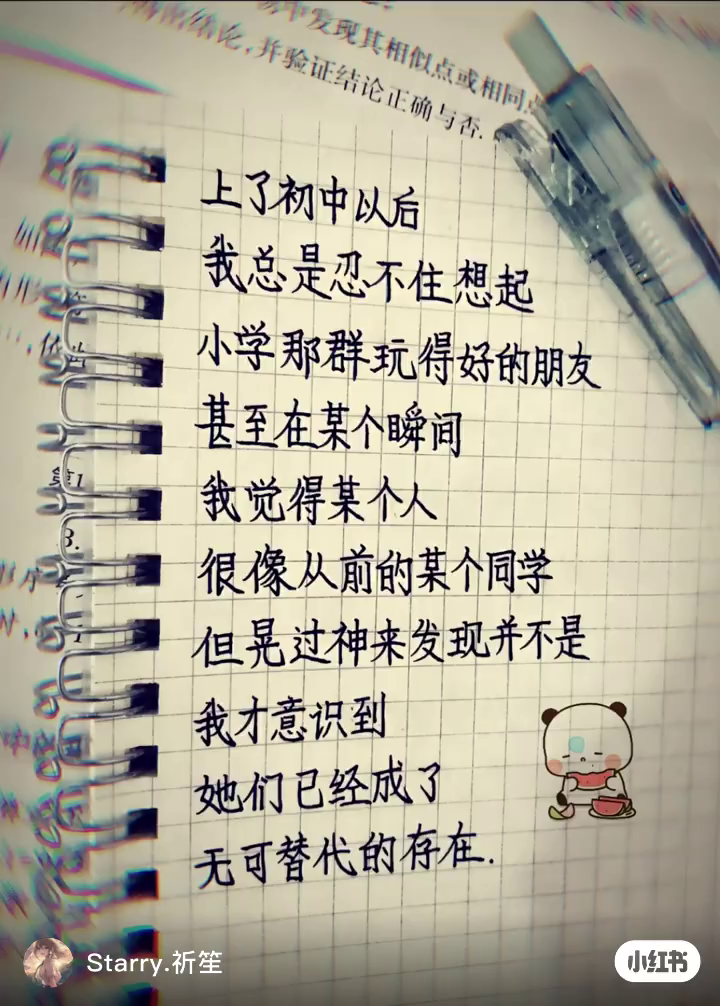 易中发现其相似点或相同点
得出结论,并验证结论正确与否.
上了初中以后
我总是忍不住想起
小学那群玩得好的朋友
甚至在某个瞬间
我觉得某个人
很像从前的某个同学
但晃过神来发现并不是
我才意识到
她们已经成了
无可替代的存在.
第1
3.
Starry.祈笙
小红书